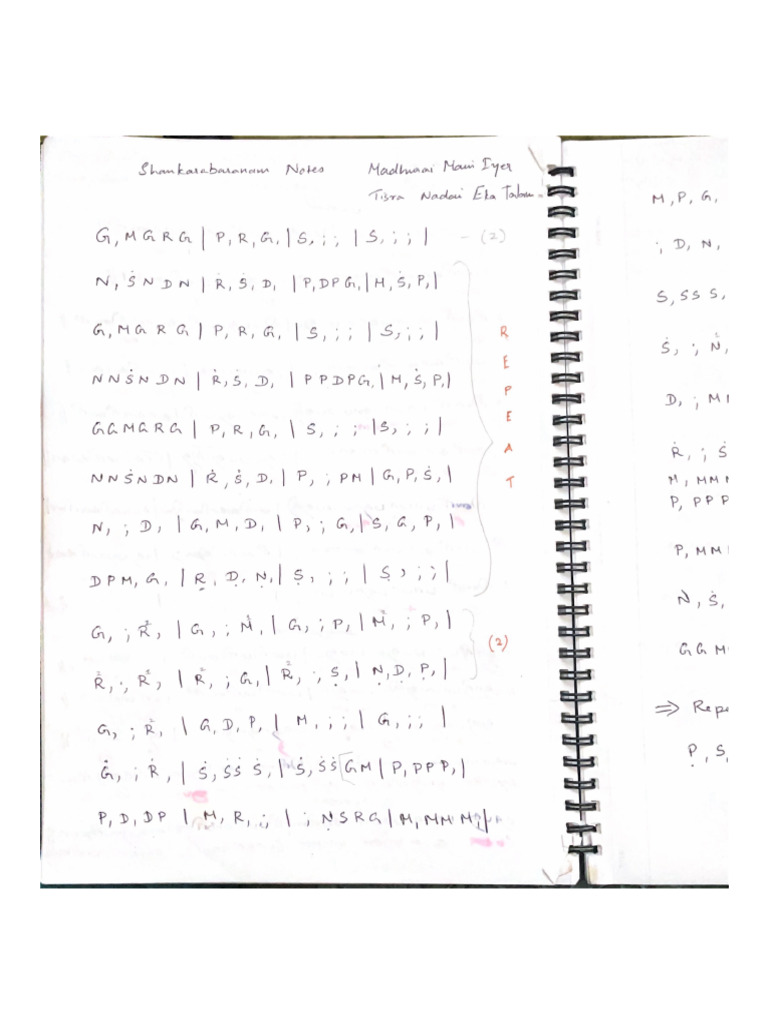 Shankarabaranam Notes Madhuaai Mani Iyer
Tisra Nadai Eka Talam
G, M G R G | P, R, G, | S, ; ; | S, ; ; | - (2)
N, Ṡ N D N | Ṙ, Ṡ, D, | P, D P G, | M, Ṡ, P, |
G, M G R G | P, R, G, | S, ; ; | S, ; ; |
N N Ṡ N D N | Ṙ, Ṡ, D, | P P D P G, | M, Ṡ, P, |
G G M G R G | P, R, G, | S, ; ; | S, ; ; |
N N Ṡ N D N | Ṙ, Ṡ, D, | P, ; P M | G, P, Ṡ, |
N, ; D, | G, M, D, | P, ; G, | S, G, P, |
D P M, G, | Ṛ, Ḍ, Ṇ, | Ṣ, ; ; | Ṣ, ; ; |
REPEAT
G, ; R², | G, ; M², | G, ; P, | M², ; P, |
R², ; R², | R², ; G, | R², ; Ṣ, | Ṇ, Ḍ, P̣, |
(2)
G, ; R², | G, D, P, | M, ; ; | G, ; ; |
Ġ, ; Ṙ, | Ṡ, Ṡ Ṡ Ṡ, | Ṡ, Ṡ Ṡ [G M | P, D P P, |
P, D, D P | M, R, ; | ; Ṇ S R G | M, M M M, |
M, P, G,
; D, N,
S, S S S,
Ṡ, ; N²,
D, ; M
Ṙ, ; Ṡ
M, M M M
P, P P P
P, M M
N, Ṡ,
G G M
⇒ Repe
P̣, S,